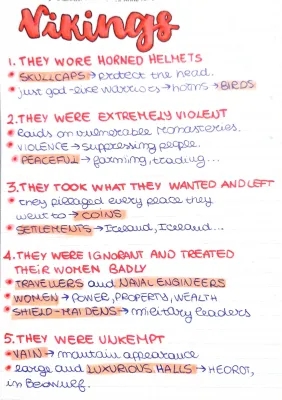 Vikings
1. THEY WORE HORNED HELMETS
* SKULLCAPS → protect the head.
* just god-like warriors → horns → BIRDS
2. THEY WERE EXTREMELY VIOLENT
* Raids on vulnerable monasteries.
* VIOLENCE → suppressing people.
* PEACEFUL → farming, trading...
3. THEY TOOK WHAT THEY WANTED AND LEFT
* they pillaged every place they
went to → COINS
* SETLEMENTS → Iceland, Iceland...
4. THEY WERE IGNORANT AND TREATED
THEIR WOMEN BADLY
* TRAVELLERS and NAVAL ENGINEERS
* WOMEN → POWER, PROPERTY, WEALTH
* SHIELD-MAIDENS → military leaders
5. THEY WERE UNKEMPT
* VAIN → maintain appearance
* large and LUXURIOUS HALLS → HEOROT,
in Beowulf.